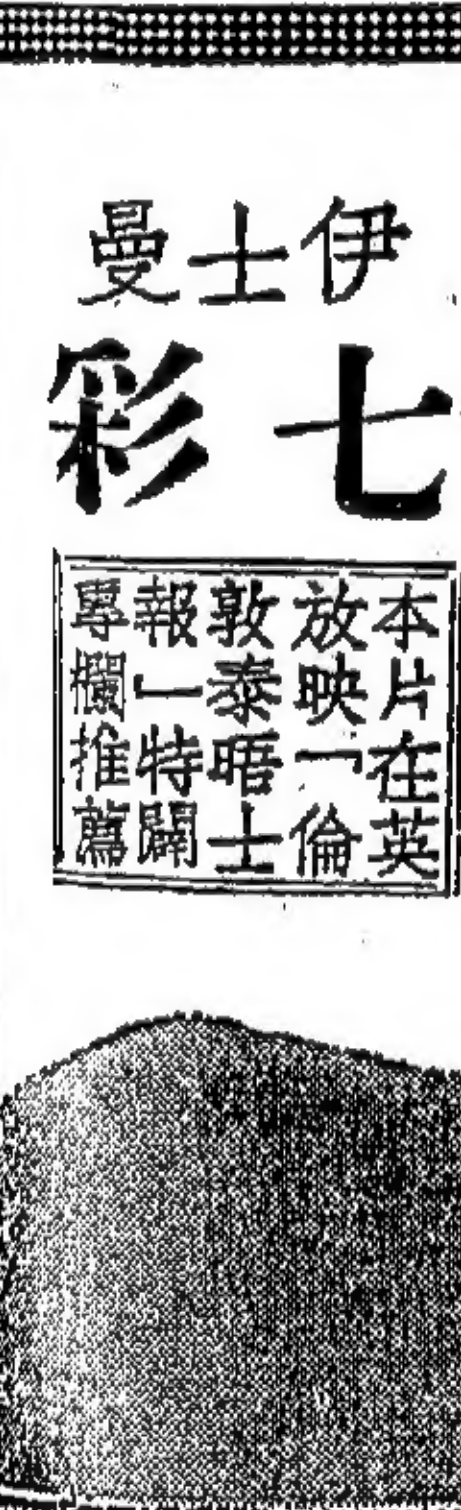 伊士曼
七彩
本片在英
放映「倫
敦泰晤士
報」特闢
專欄推薦